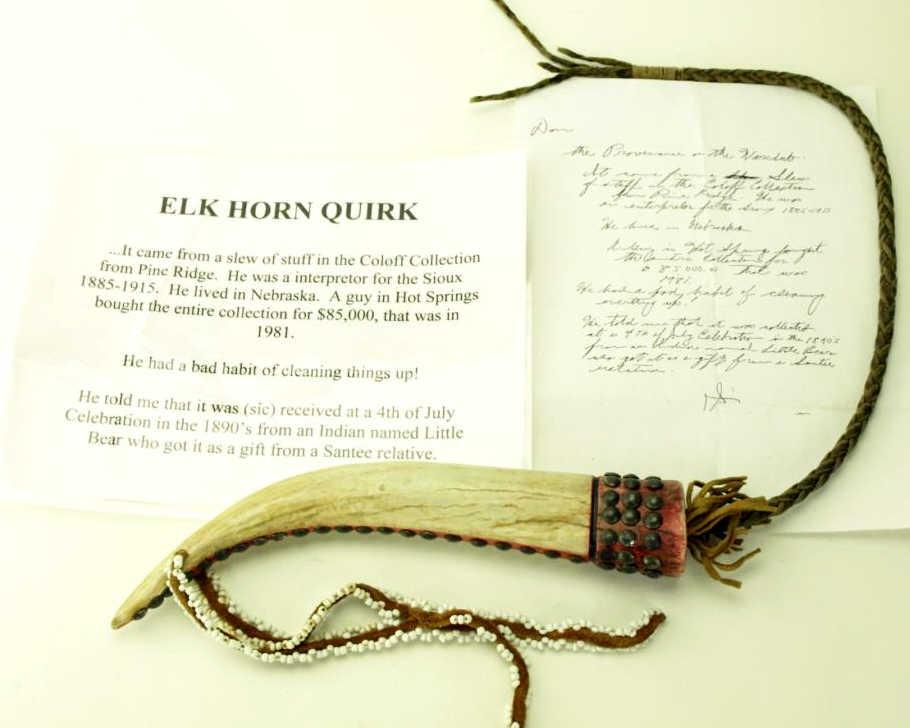 ELK HORN QUIRK
...It came from a slew of stuff in the Coloff Collection
from Pine Ridge. He was a interpretor for the Sioux
1885-1915. He lived in Nebraska. A guy in Hot Springs
bought the entire collection for $85,000, that was in
1981.
He had a bad habit of cleaning things up!
He told me that it was (sic) received at a 4th of July
Celebration in the 1890's from an Indian named Little
Bear who got it as a gift from a Santee relative.
Don
the Provenance on the
It came from a Slew
of stuff in the Coloff Collection
from Pine Ridge. He was
an interpretor for the Sioux 1885-1915
He lived in Nebraska
A Guy in Hot Springs bought
the entire Collection for
$85,000.00 that was
1981.
He had a habit of cleaning
everything up.
He told me that it was collected
at a 4th of July Celebration in the 1890's
from an Indian named Little Bear
who got it as a gift from a Santee
relative.